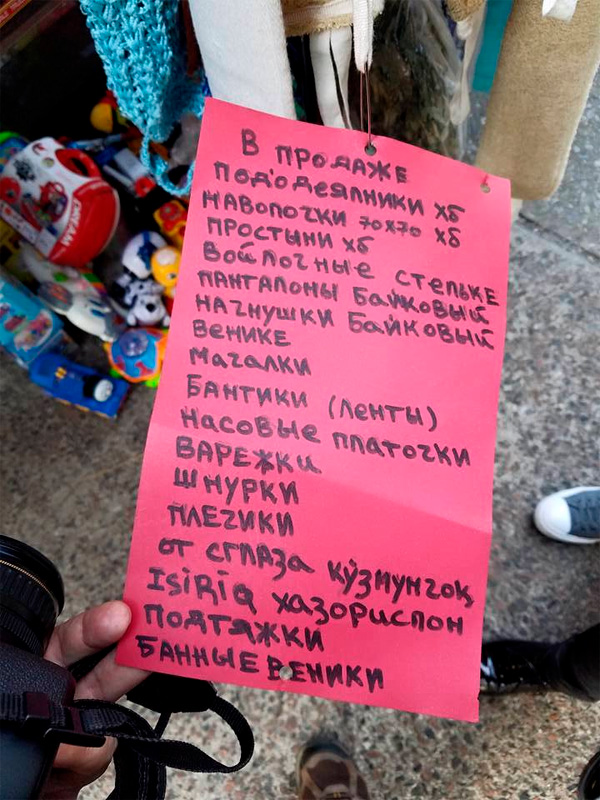 В ПРОДАЖЕ
ПОД'ОДЕЯЛНИКИ ХБ
НАВОЛОЧКИ 70Х70 ХБ
ПРОСТЫНИ ХБ
ВОЙЛОЧНЫЕ СТЕЛЬКЕ
ПАНТАЛОНЫ БАЙКОВЫЙ
НАЧНУШКИ БАЙКОВЫЙ
ВЕНИКЕ
МАЧАЛКИ
БАНТИКИ (ЛЕНТЫ)
НАСОВЫЕ ПЛАТОЧКИ
ВАРЕЖКИ
ШНУРКИ
ПЛЕЧИКИ
ОТ СГЛАЗА КЎЗМУНЧОҚ
ISIRIQ ХАЗОРИСПОН
ПОДТЯЖКИ
БАННЫЕ ВЕНИКИ